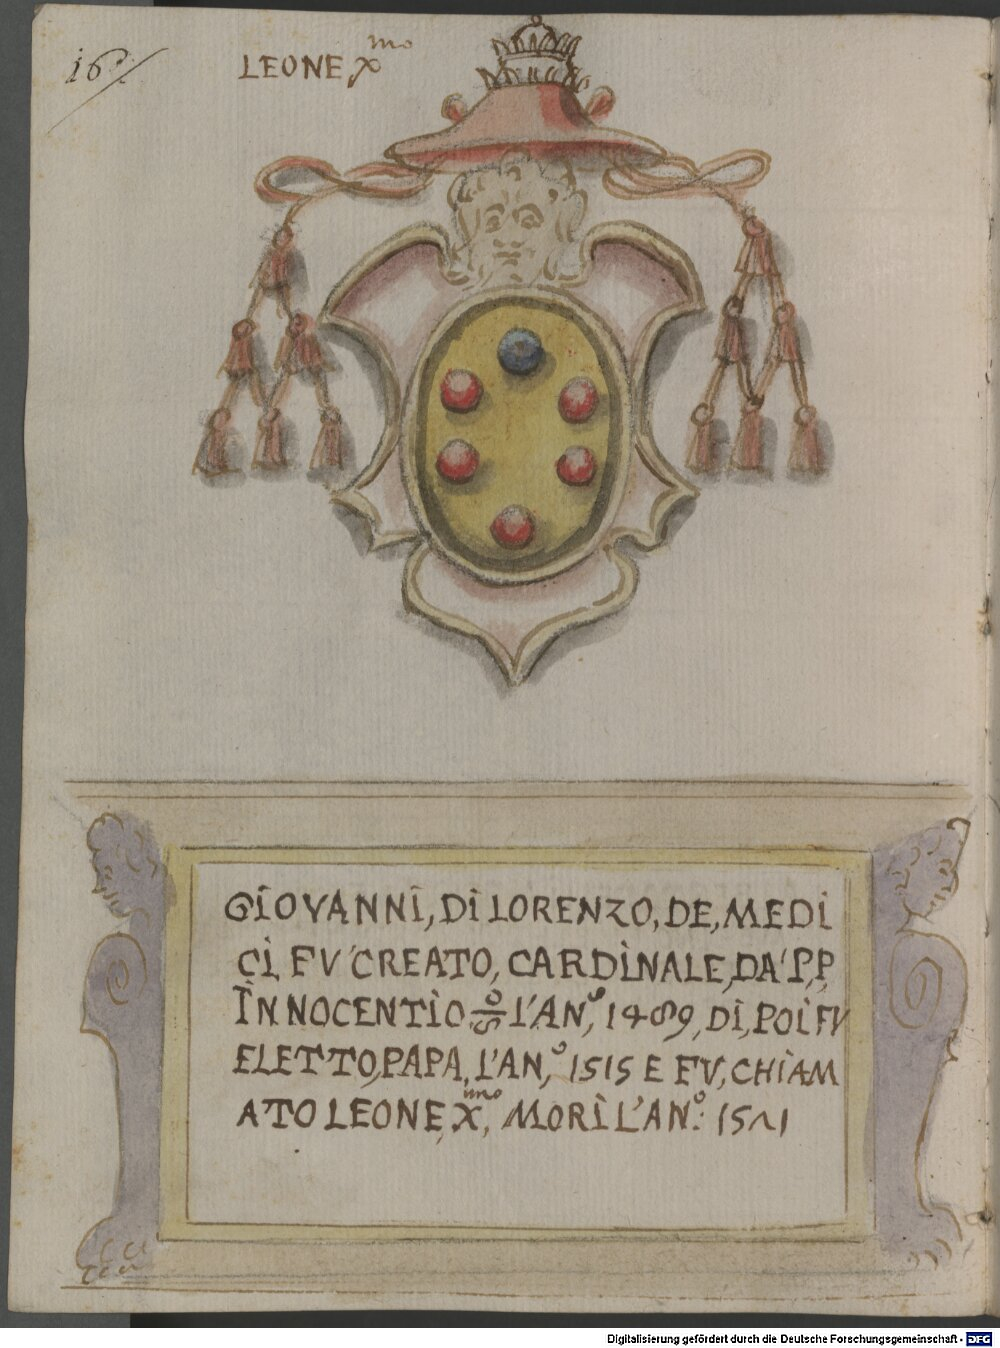 16
LEONE Xmo
GIOVANNI, DI LORENZO, DE, MEDI
CI, FV CREATO, CARDINALE, DA' P,P,
INNOCENTIO 8o L'ANo, 1489, DI, POI FV
ELETTO, PAPA, L'AN,o 1515 E FV, CHIAM
ATO LEONE, Ximo, MORI L'ANo: 1521
Digitalisierung gefördert durch die Deutsche Forschungsgemeinschaft - DFG